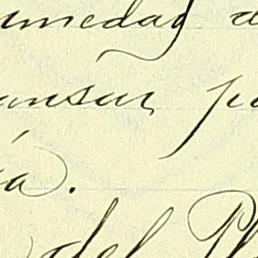 umedad d
ansar pa
ía.
del Pl